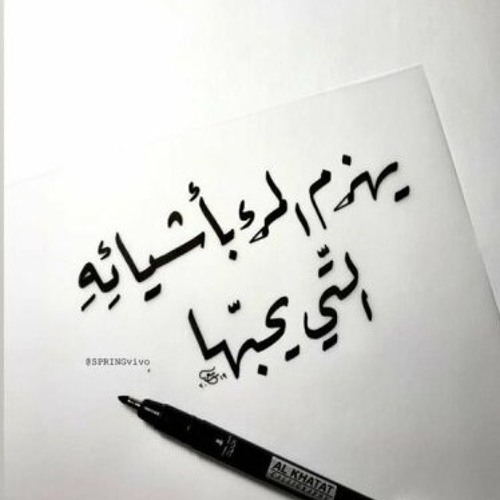 يهزم المرء بأشيائِهِ
التّي يحبّها
@SPRINGvivo
AL KHATAT